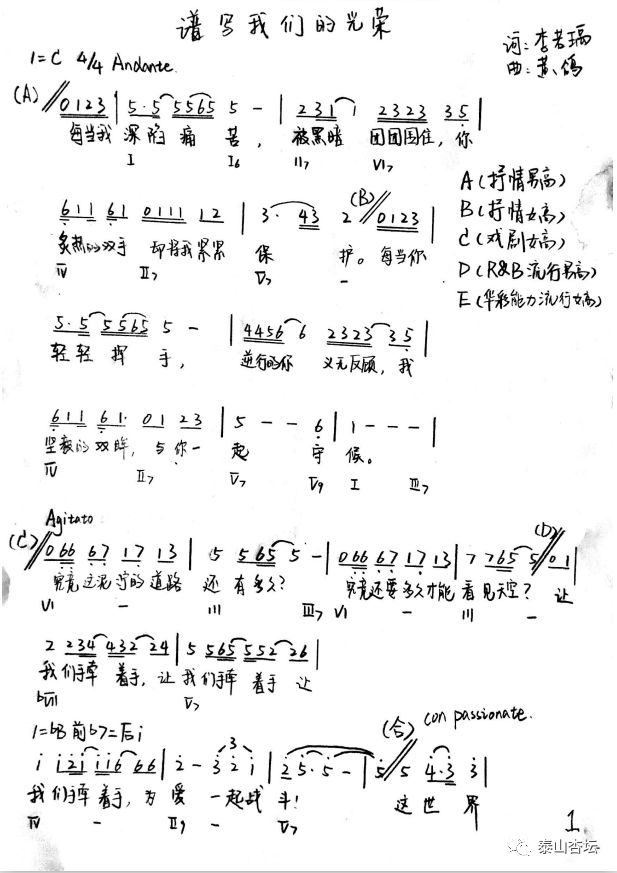 谱写我们的光荣
1=C 4/4 Andante.
词:李若瑀
曲:黄鸽
(A) 0123 | 5·5 5565 5 - | 231 1 2323 35 |
每当我 深陷痛苦, 被黑暗 团团围住, 你
I I6 II7 VI7
A(抒情男高)
B(抒情女高)
C(戏剧女高)
D(R&B流行男高)
E(华彩能力流行女高)
611 61 0111 12 | 3· 43 2 (B) 0123 |
炙热的双手 却将我紧紧 保 护。每当你
IV II7 V7 -
5·5 5565 5 - | 4456 6 2323 35 |
轻轻挥手, 逆行的你 义无反顾, 我
611 61· 01 23 | 5 - - 6 | 1 - - - |
坚毅的双眸, 与你一 起 守 候。
IV II7 V7 V9 I III7
Agitato
(C) 066 67 17 13 | 5 5 565 5 - | 066 67 17 13 | 7 765 5 (D) 01 |
究竟这泥泞的道路 还有多久? 究竟还要多久才能 看见天空? 让
VI - III III7 VI - III -
2 234 432 24 | 5 565 552 26 |
我们手牵着手, 让我们手牵着手 让
bVII V7
1=bB 前b7=后i
i i2i ii6 66 | 2 - 3 2 1 | 2 5· 5 - | 5 5 4·3 3 |
3
(合) con passionate.
我们手牵着手, 为 爱 一起战 斗! 这世界
IV - II9 - V7
1
泰山杏坛